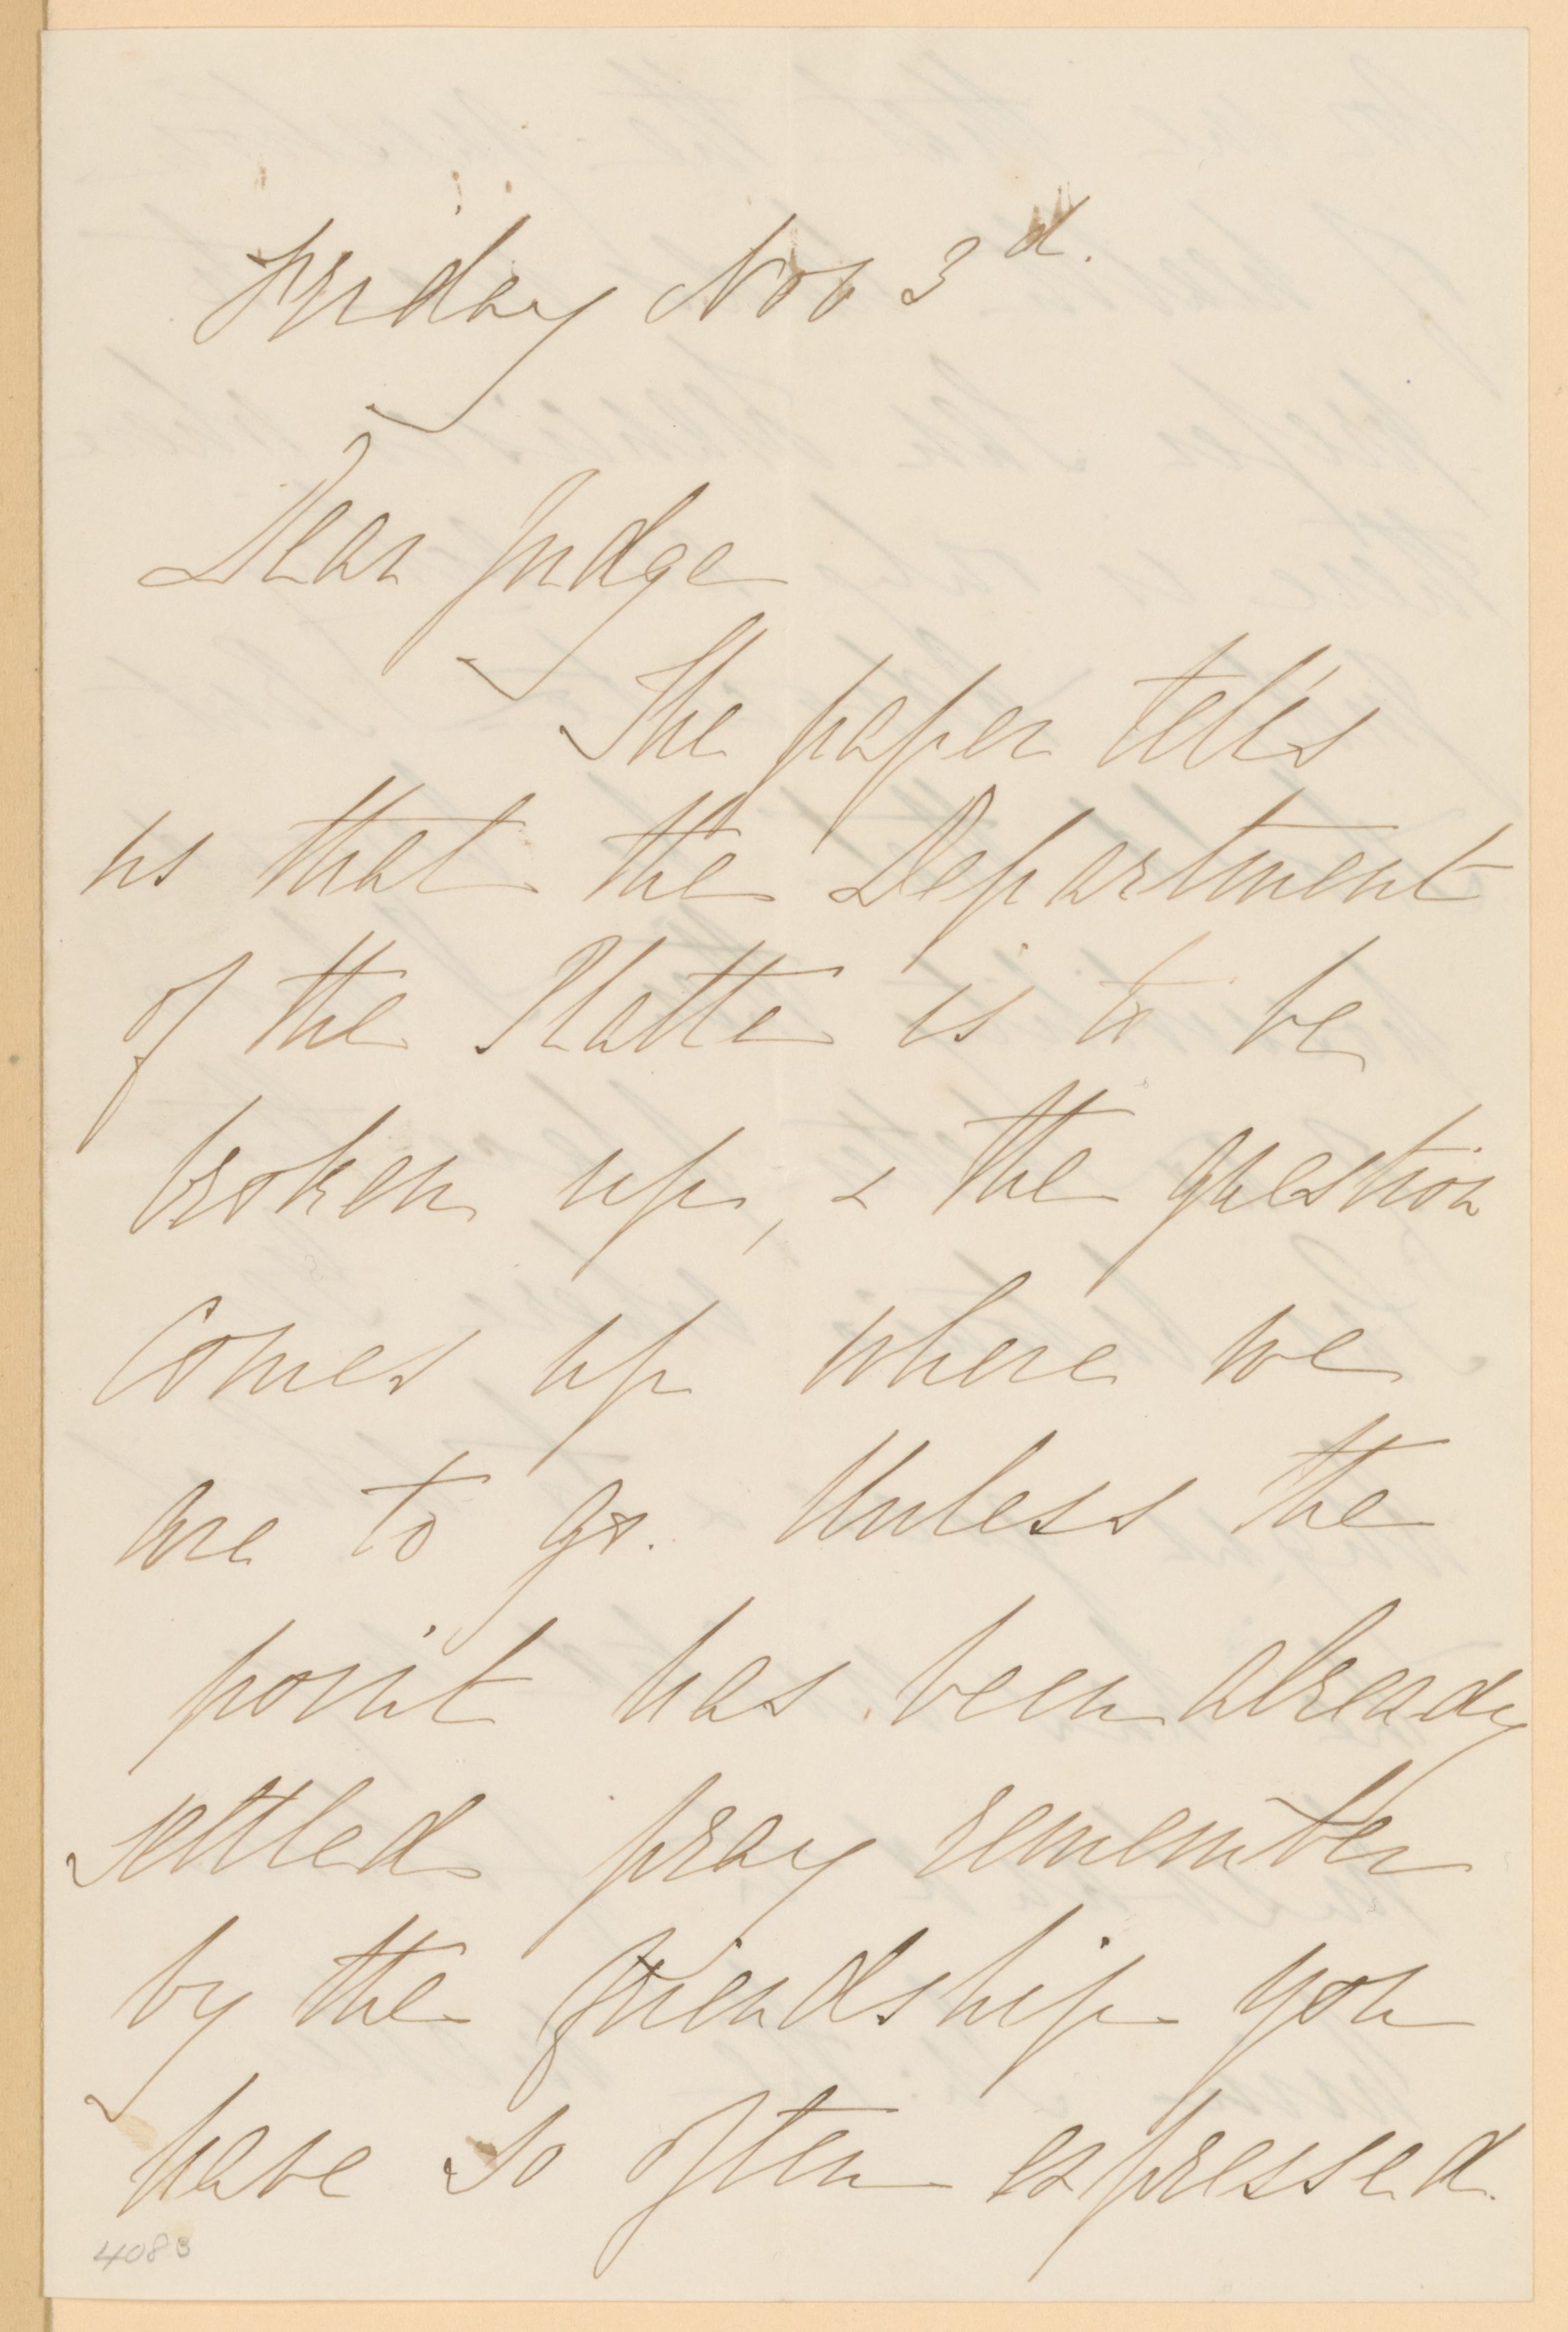 Friday Nov 3d.
Dear Judge
The paper tell's
us that the Department
of the Platte is to be
broken up, & the question
comes up where we
are to go. Unless the
point has been already
settled pray remember
by the friendship you
have so often expressed.
4083